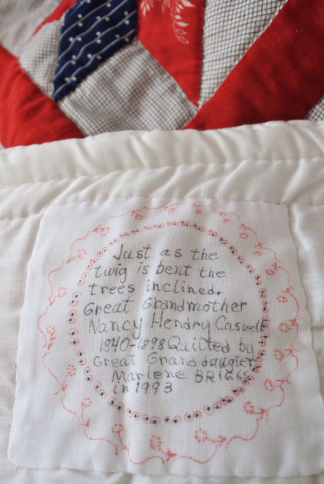 Just as the
twig is bent the
trees inclined.
Great Grandmother
Nancy Hendry Caswell
1840-1898 Quilted by
Great Granddaughter
Marlene
in 1993